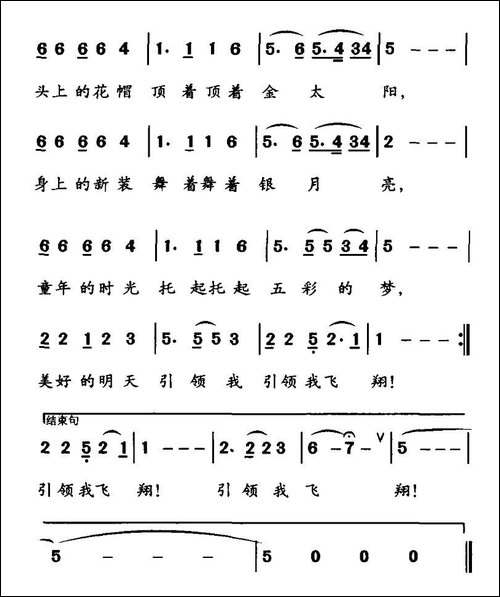 6 6 6 6 4 | 1· 1 1 6 | 5· 6 5·4 34 | 5 - - - |
头上的花帽 顶着顶着金太阳，
6 6 6 6 4 | 1· 1 1 6 | 5· 6 5·4 34 | 2 - - - |
身上的新装 舞着舞着银月亮，
6 6 6 6 4 | 1· 1 1 6 | 5· 5 5 3 4 | 5 - - - |
童年的时光托起托起五彩的梦，
2 2 1 2 3 | 5· 5 5 3 | 2 2 5 2·1 | 1 - - - :‖
美好的明天 引领我 引领我飞翔！
结束句
2 2 5 2 1 | 1 - - - | 2· 2 2 3 | 6 - 7 - V | 5 - - - |
引领我飞翔！ 引领我飞翔！
5 - - - | 5 0 0 0 ‖